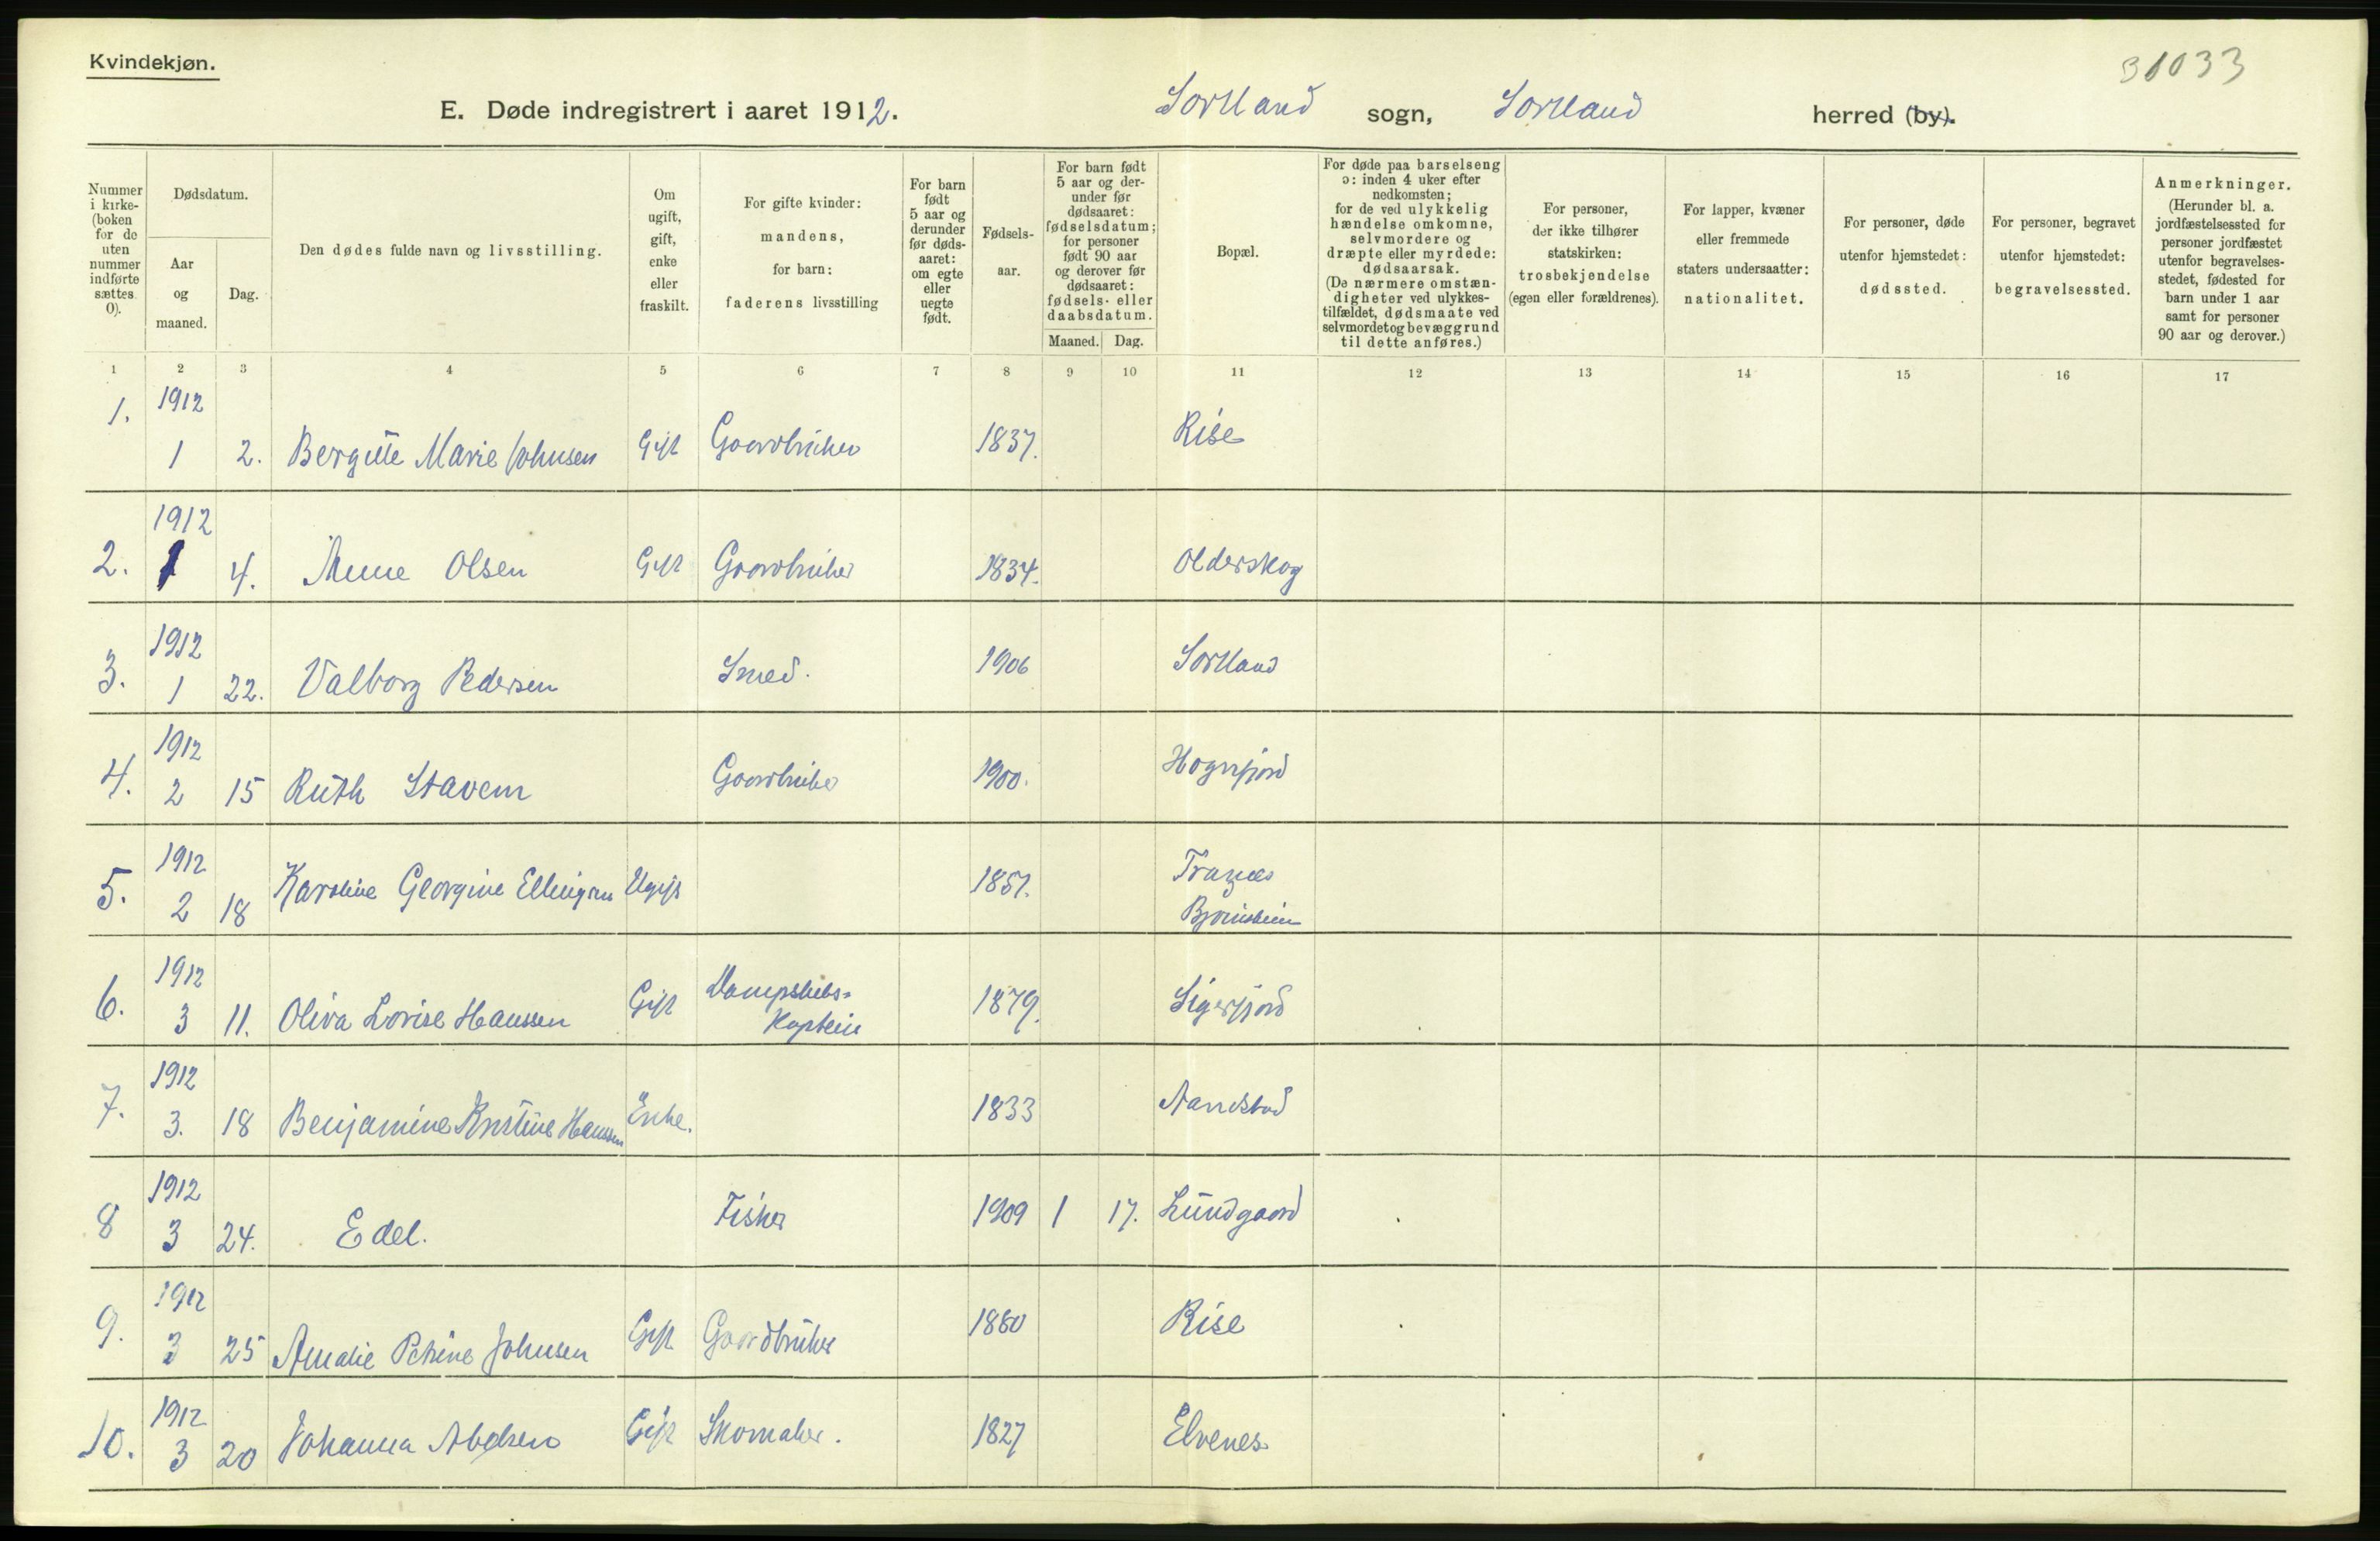 Kvindekjøn.
31033
E. Døde indregistrert i aaret 1912. Sortland sogn, Sortland herred (by).
Nummer i kirke- (boken for de uten nummer indførte sættes 0).
Dødsdatum.
Aar og maaned.
Dag.
Den dødes fulde navn og livsstilling.
Om ugift, gift, enke eller fraskilt.
For gifte kvinder: mandens, for barn: faderens livsstilling
For barn født 5 aar og derunder før døds- aaret: om egte eller uegte født.
Fødsels- aar.
For barn født 5 aar og der- under før dødsaaret: fødselsdatum; for personer født 90 aar og derover før dødsaaret: fødsels- eller daabsdatum.
Maaned. Dag.
Bopæl.
For døde paa barselseng ɔ: inden 4 uker efter nedkomsten; for de ved ulykkelig hændelse omkomne, selvmordere og dræpte eller myrdede: dødsaarsak. (De nærmere omstæn- digheter ved ulykkes- tilfældet, dødsmaate ved selvmordet og bevæggrund til dette anføres.)
For personer, der ikke tilhører statskirken: trosbekjendelse (egen eller forældrenes).
For lapper, kvæner eller fremmede staters undersaatter: nationalitet.
For personer, døde utenfor hjemstedet: dødssted.
For personer, begravet utenfor hjemstedet: begravelsessted.
Anmerkninger. (Herunder bl. a. jordfæstelsessted for personer jordfæstet utenfor begravelses- stedet, fødested for barn under 1 aar samt for personer 90 aar og derover.)
1 2 3 4 5 6 7 8 9 10 11 12 13 14 15 16 17
1. 1912 1 2. Bergitte Marie Johnsen Gift Gaardbruker 1837. Rise
2. 1912 1 4. Anne Olsen Gift Gaardbruker 1834. Olderskog
3. 1912 1 22. Valborg Pedersen Smed. 1906 Sortland
4. 1912 2 15 Ruth Stavem Gaardbruker 1900. Hognfjord
5. 1912 2 18 Karoline Georgine Ellingsen Ugift 1857. Franæs
6. 1912 3 11. Oliva Lovise Hanssen Gift Dampskibs- Kaptein 1879. Sigerfjord
7. 1912 3. 18 Benjamine Kristine Hanssen Enke. 1833 Aandstad
8 1912 3 24. Edel. Fisker 1909 1 17. Lundgaard
9. 1912 3 25 Amalie Petrine Johnsen Gift Gaardbruker 1860 Rise
10. 1912 3 20 Johanna Abelsen Gift Skomaker. 1827 Elvenes